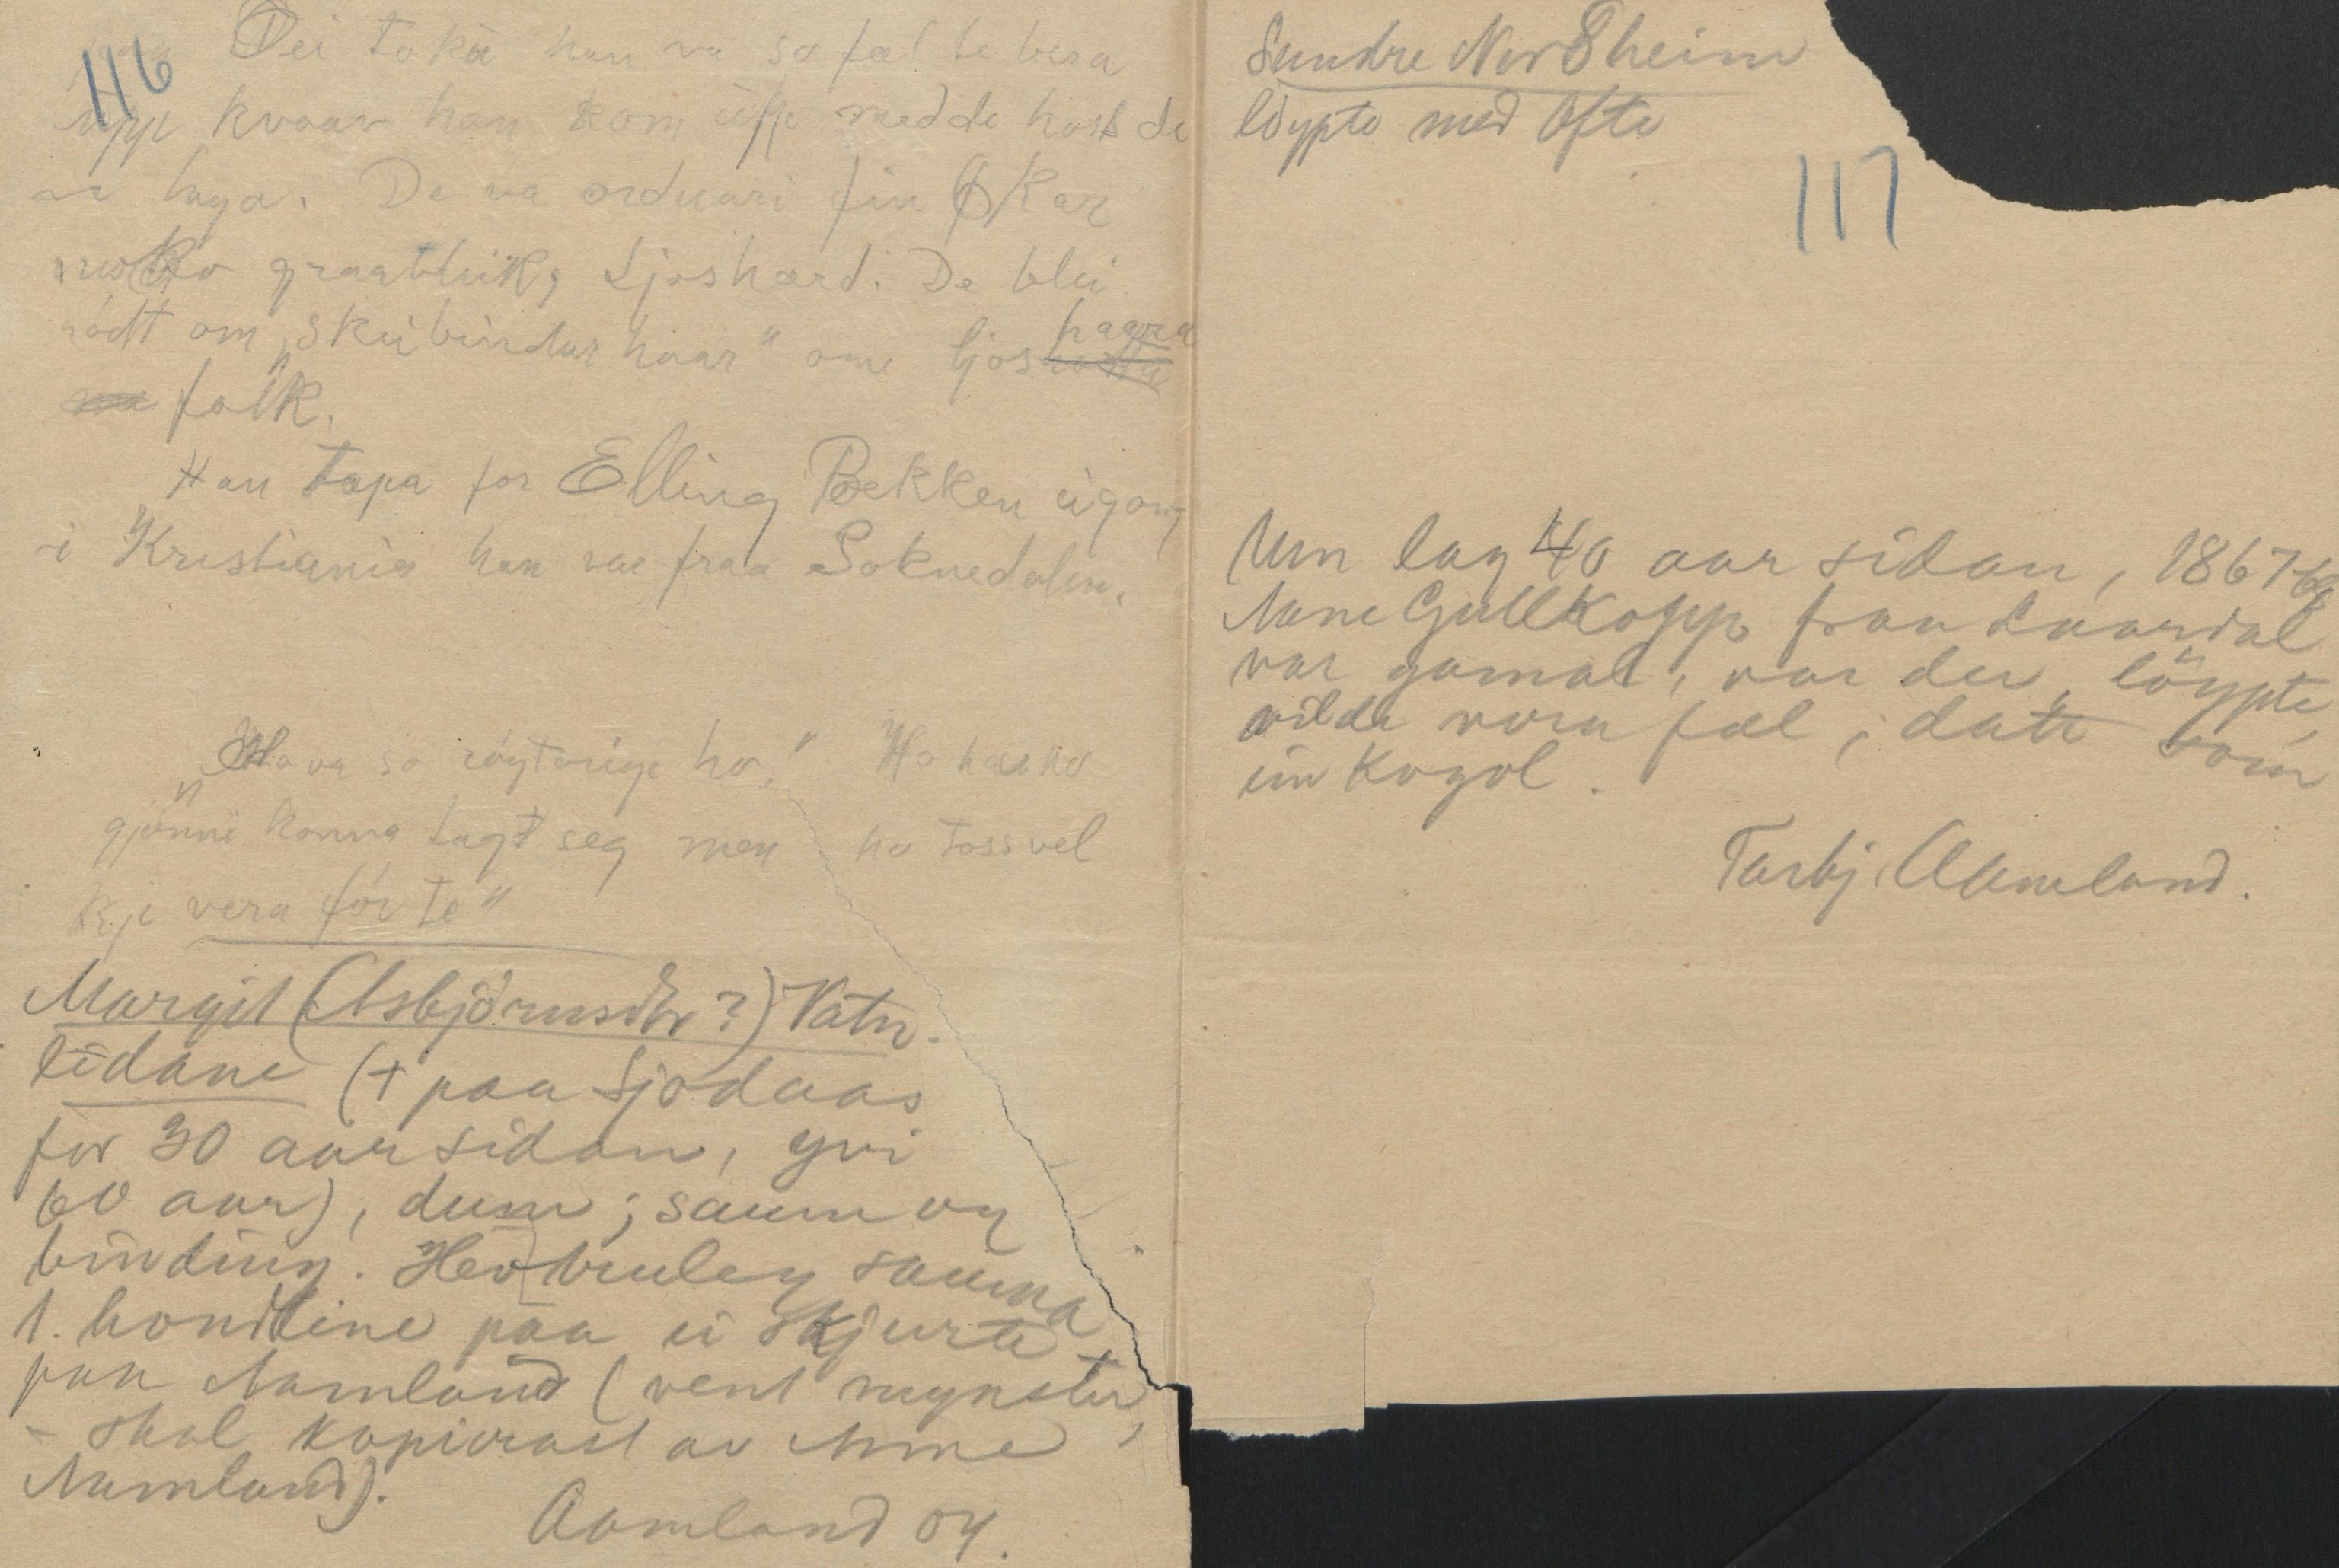 116
Dei tokä han va so fæl te bera
upp kvaar han kom üpp medde hast de
va laga. De va orduari fin Kar
noko graableik, Ljoshærd. De blei
nödt om "Skeibindar haar" ome ljoshaara
folk.
Han tapa for Elling Bekken eigong
i Kristiania han va fraa Soknedalen.
"Ho va so röytarige ho." Ho hadd
gjönne konna tagt seg men ho toss vel
kje vera för te"
Margit (Asbjörnsdtr?) Vatn-
lidane (+ paa Sjodaas
for 30 aar sidan, yvi
60 aar), dum; saum og
binding. Hev truleg sauma
1. hondline paa ei skjurte
paa Aamland (vent mynster,
- skal kopierast av Anne
Aamland).
Aamland 04.
Sundre Nordheim
löypte med Ofte
117
Um lag 40 aar sidan, 1867-68
Anne Gullkopp fraa Laardal
var gamal, var der, löypte,
vilde vera fæl, datt som
ein Kogol.
Tarbj. Aamland.